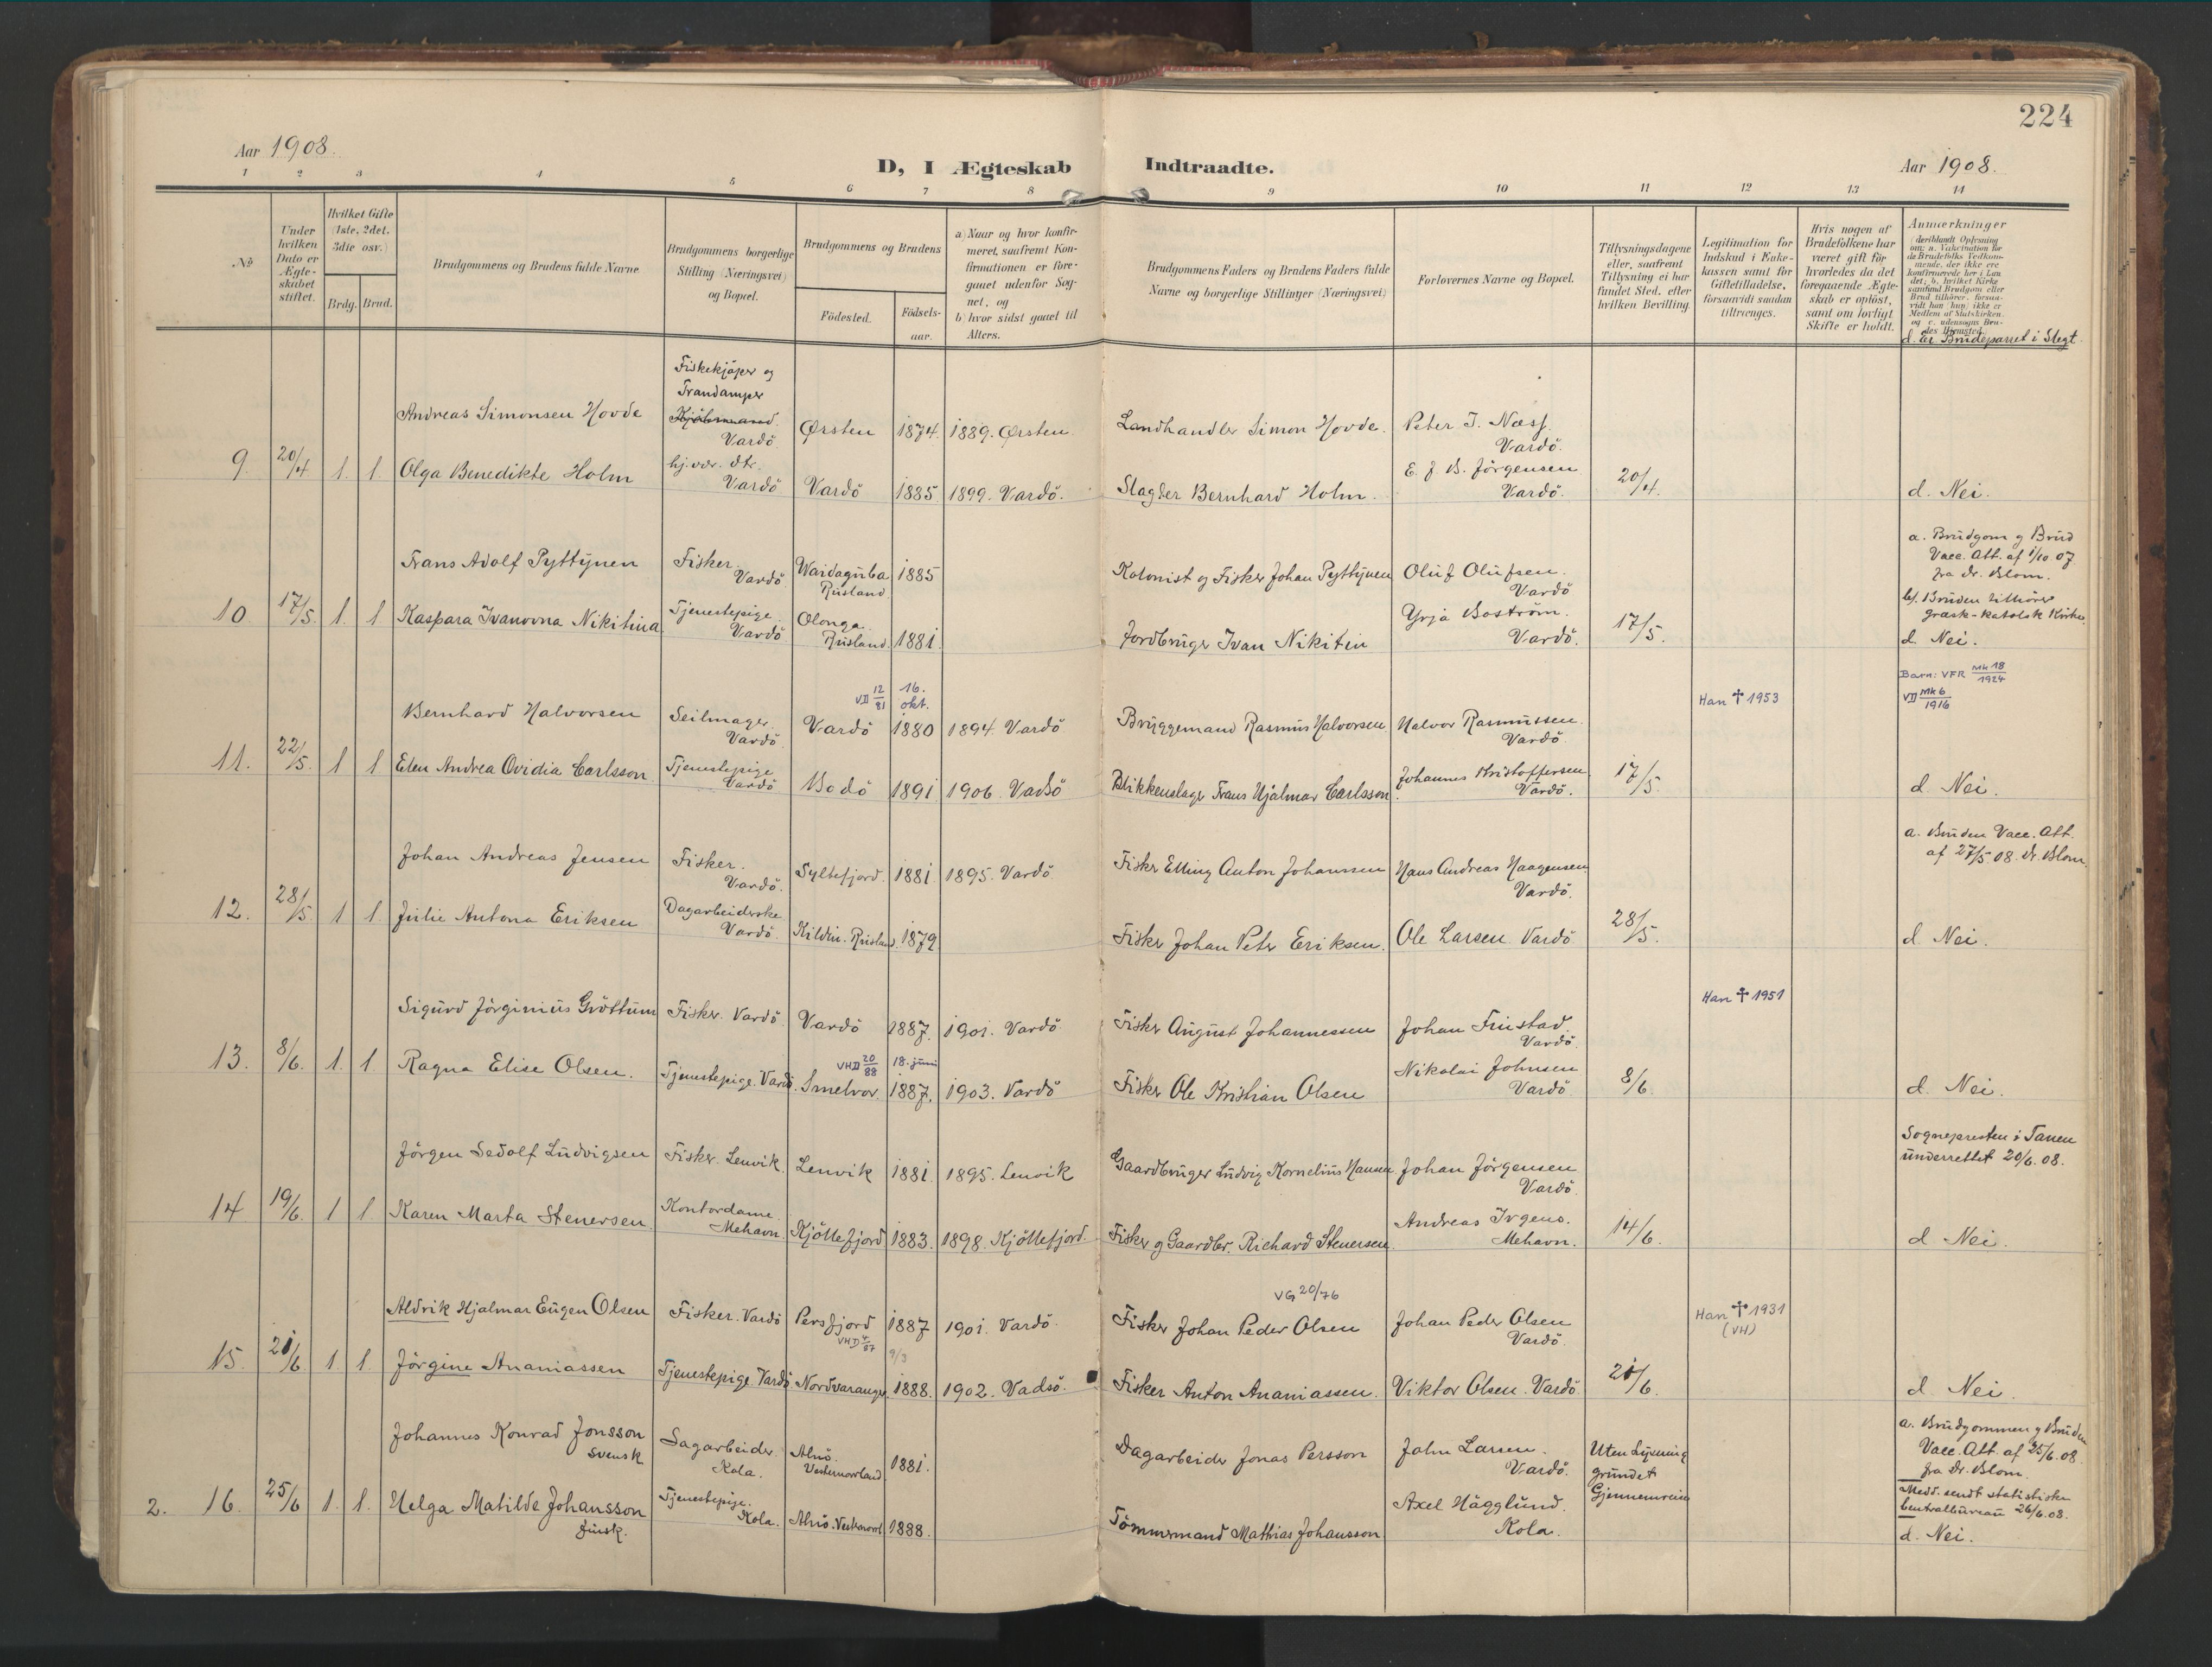 224
Aar 1908.
D, I Ægteskab Indtraadte.
Aar 1908.
1 2 3 4 5 6 7 8 9 10 11 12 13 14
No
Under hvilken Dato er Ægteskabet stiftet.
Hvilket Gifte (1ste, 2det, 3die osv.)
Brdg. Brud.
Brudgommens og Brudens fulde Navne
Brudgommens borgerlige Stilling (Næringsvei) og Bopæl.
Brudgommens og Brudens
Födested.
Födsels-aar.
a) Naar og hvor konfirmeret, saafremt Konfirmationen er foregaaet udenfor Sognet, og
b) hvor sidst gaaet til Alters.
Brudgommens Faders og Brudens Faders fulde Navne og borgerlige Stillinger (Næringsvei)
Forlovernes Navne og Bopæl.
Tillysningsdagene eller, saafremt Tillysning ei har fundet Sted, efter hvilken Bevilling.
Legitimation for Indskud i Enkekassen samt for Giftetilladelse, forsaavidt saadan tiltrænges.
Hvis nogen af Brudefolkene har været gift för hvorledes da det foregaaende Ægteskab er oplöst, samt om lovligt Skifte er holdt.
Anmærkninger
(deriblandt Oplysning om: a. Vakcination for de Brudefolks Vedkommende, der ikke ere konfirmerede her i Landet; b. hvilket Kirkesamfund Brudgom eller Brud tilhörer, forsaavidt han, hun, ikke er Medlem af Statskirken, og c. udensogns Brudes Hjemsted.
d. Er Brudeparret i Slegt.
Fiskekjøper og
Trandamper
Andreas Simonsen Hovde
Vardö
Ørsten 1874. 1889. Ørsten.
Landhandler Simon Hovde.
Peter J. Næss.
Vardö.
9 20/4 1. 1. Olga Benedikte Holm
hj.vær. dtr.
Vardö
Vardö 1885 1899. Vardö.
Slagter Bernhard Holm.
E. J. B. Jörgensen
Vardö.
20/4.
d. Nei.
Frans Adolf Pyttynen
Fisker.
Vardö
Waidaguba
Rusland
1885
Kolonist og Fisker Johan Pyttynen
Oluf Olufsen.
Vardö
a. Brudgom og Brud
Vacc. Att. af 1/10 07
fra Dr. Blom.
10 17/5. 1. 1 Kaspara Ivanovna Nikitina
Tjenestepige.
Vardö
Olonga
Rusland.
1881.
Jordbruger Ivan Nikitin
Yrja Boström.
Vardö.
17/5.
b). Bruden tilhörer
græsk-katolsk Kirke.
d. Nei.
VD 12/81
16. okt.
Han † 1953
Barn: VFR Mk 18/1924
VD Mk 6/1916
Bernhard Halvorsen
Seilmager.
Vardö.
Vardö 1880 1894. Vardö
Bryggemand Rasmus Halvorsen
Halvor Rasmussen.
Vardö.
11. 22/5. 1 1 Elen Andrea Ovidia Carlsson
Tjenestepige
Vardö
Bodö 1891. 1906. Vadsö
Blikkenslager Frans Hjalmar Carlsson.
Johannes Kristoffersen
Vardö.
17/5.
d. Nei.
Johan Andreas Jensen
Fisker.
Vardö.
Syltefjord. 1881. 1895. Vardö
Fisker Elling Anton Johanssen
Hans Andreas Haagensen.
Vardö.
a. Bruden Vacc. Att.
af 27/5 08. Dr. Blom.
12. 28/5. 1 1. Julie Antona Eriksen
Dagarbeiderske
Vardö.
Kildin. Rusland. 1879
Fisker Johan Peter Eriksen.
Ole Larsen. Vardö
28/5.
d. Nei.
Han † 1951
Sigurd Jörginius Gröttum
Fisker. Vardö
Vardö 1887. 1901. Vardö
Fisker August Johannessen
Johan Frustad.
Vardö.
13. 8/6. 1. 1 Ragna Elise Olsen.
Tjenestepige. Vardö.
VHD 20/88
18. juni
Smelvor. 1887. 1903. Vardö
Fisker Ole Kristian Olsen
Nikolai Johnsen
Vardö
8/6.
d. Nei.
Jörgen Sedolf Ludvigsen
Fisker. Lenvik
Lenvik 1881. 1895. Lenvik
Gaardbruger Ludvig Kornelius Hansen
Johan Jörgensen
Vardö.
Sognepresten i Tanen
underrettet 20/6. 08.
14 19/6. 1 1. Karen Marta Stenersen.
Kontordame
Mehavn.
Kjöllefjord 1883. 1898. Kjöllefjord.
Fisker og Gaardbr. Richard Stenersen.
Andreas Irgens.
Mehavn.
14/6.
d. Nei.
VG 20/76
Han † 1931
(VH)
Aldrik Hjalmar Eugen Olsen
Fisker. Vardö
Persfjord 1887 1901. Vardö.
Fisker Johan Peder Olsen
Johan Peder Olsen
Vardö.
VHD 4/87
9/3
15. 21/6 1. 1. Jörgine Ananiassen
Tjenestepige. Vardö
Nordvaranger. 1888. 1902. Vadsö.
Fisker Anton Ananiassen.
Viktor Olsen. Vardö
21/6.
d. Nei.
Johannes Konrad Jonsson
Svensk
Sagarbeider
Kola.
Alnö.
Vesternorrland
1881.
Dagarbeider Jonas Persson
John Larsen.
Vardö.
Uten Lysning
grundet
Gjennemreise
a. Brudgommen og Bruden
Vacc. Att. af 25/6. 08.
fra Dr. Blom.
2. 16. 25/6 1. 1. Helga Matilde Johansson
Finsk.
Tjenestepige.
Kola.
Alnö. 1888.
Tömmermand Mathias Johansson
Axel Hägglund.
Kola.
Medd. sendt statistiske
Centralbureau 26/6. 08.
d. Nei.